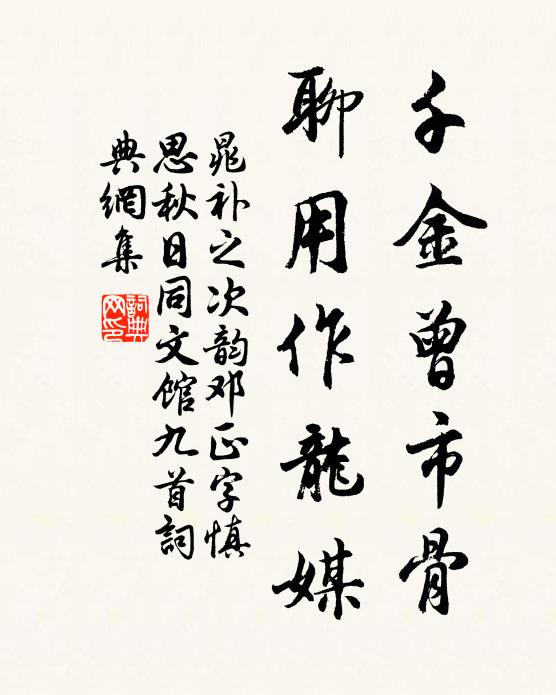 千金曾市骨
聊用作龍媒
晁补之次韵邓正字慎
思秋日同文馆九首詞
典網集
詞典
网印